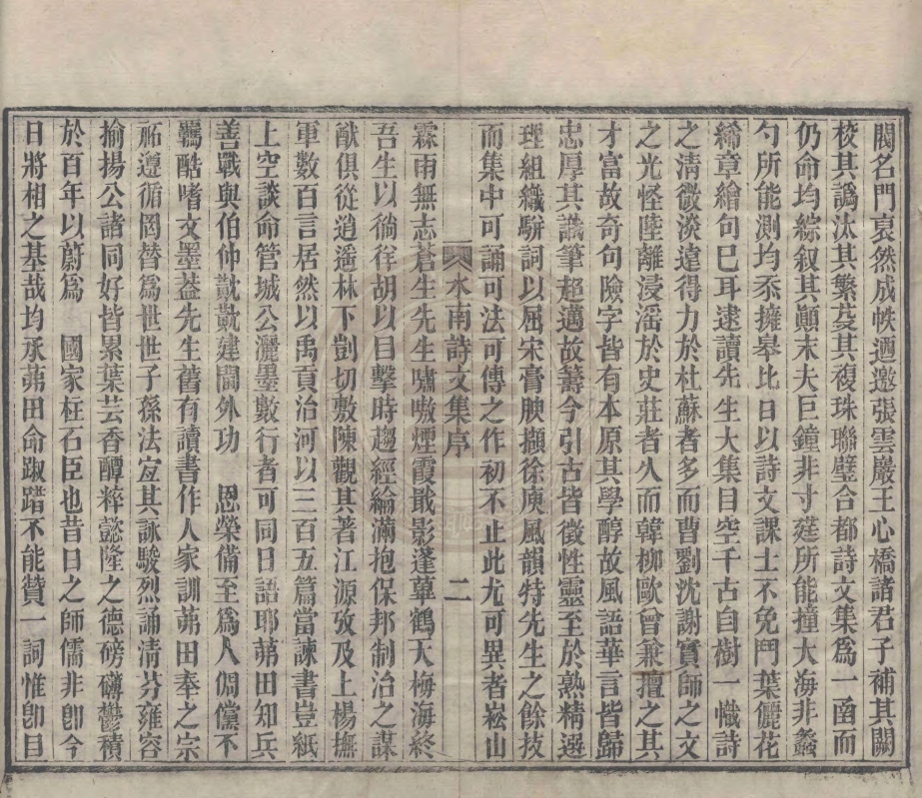 閥名門裒然成帙迺邀張雲巖王心橋諸君子補其闕
校其譌汰其繁芟其複珠聯璧合都詩文集爲一函而
仍命均綜叙其顛末夫巨鐘非寸莛所能撞大海非蠡
勺所能測均忝擁皋比日以詩文課士不免鬥葉儷花
絺章繪句已耳逮讀先生大集目空千古自樹一幟詩
之清微淡遠得力於杜蘇者多而曹劉沈謝實師之文
之光怪陸離浸淫於史莊者久而韓柳歐曾兼擅之其
才富故奇句險字皆有本原其學醇故風語華言皆歸
忠厚其識筆超邁故籌今引古皆徵性靈至於熟精選
理組織駢詞以屈宋膏腴擷徐庾風韻特先生之餘技
而集中可誦可法可傳之作初不止此尤可異者崧山
水南詩文集序 二
霖雨無志蒼生先生嘯嗷煙霞戢影蓬蓽鶴天梅海終
吾生以徜徉胡以目擊時趨經綸滿抱保邦制治之謀
猷俱從逍遥林下剴切敷陳觀其著江源攷及上楊撫
軍數百言居然以禹貢治河以三百五篇當諫書豈紙
上空談命管城公灑墨數行者可同日語耶茀田知兵
善戰與伯仲歡歡建閫外功 恩榮備至爲人倜儻不
羈酷嗜文墨葢先生舊有讀書作人家訓茀田奉之宗
祏遵循罔替爲世世子孫法宐其詠駿烈誦清芬雍容
揄揚公諸同好皆累葉芸香醰粹懿隆之德磅礴鬱積
於百年以蔚爲 國家柱石臣也昔日之師儒非卽今
日將相之基哉均承茀田命踧踖不能贊一詞惟卽目